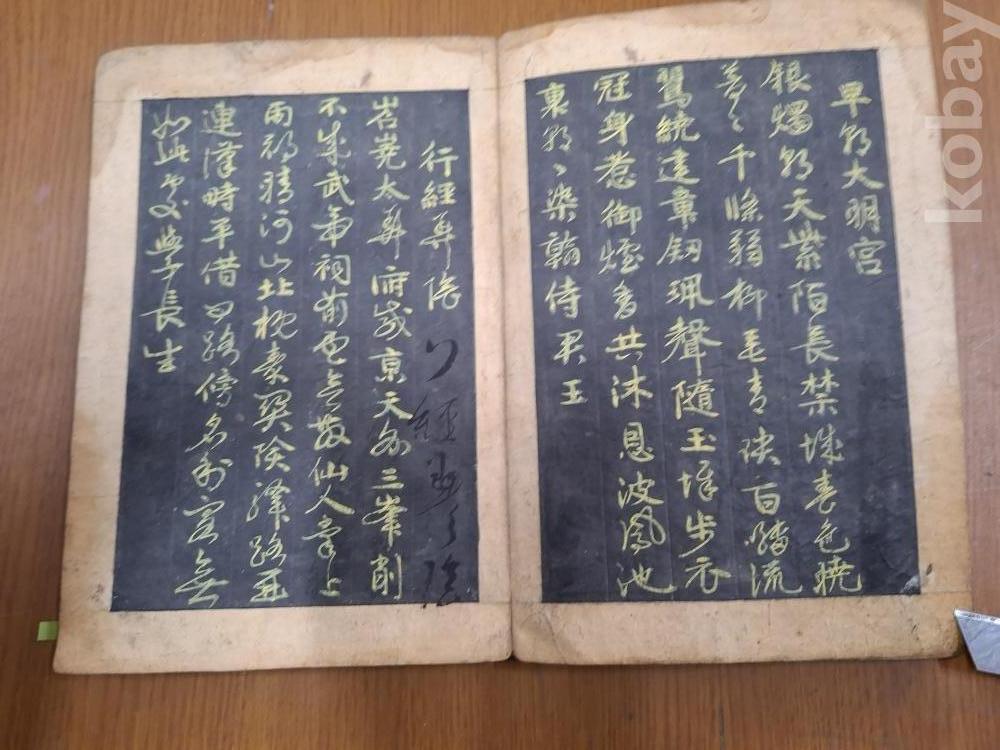 早朝大明宮
銀燭朝天紫陌長禁城春色曉
蒼々千條弱柳垂青瑣百囀流
鶯繞建章劔珮聲隨玉墀步衣
冠身惹御爐香共沐恩波鳳池
裏朝々染翰侍君玉
行經華陰
行經華陰
岧嶤太華俯咸京天外三峯削
不成武帝祠前雲欲散仙人掌上
雨初晴河山北枕秦関険驛路西
連漢時平借問路傍名利客無
如此處學長生
kobay